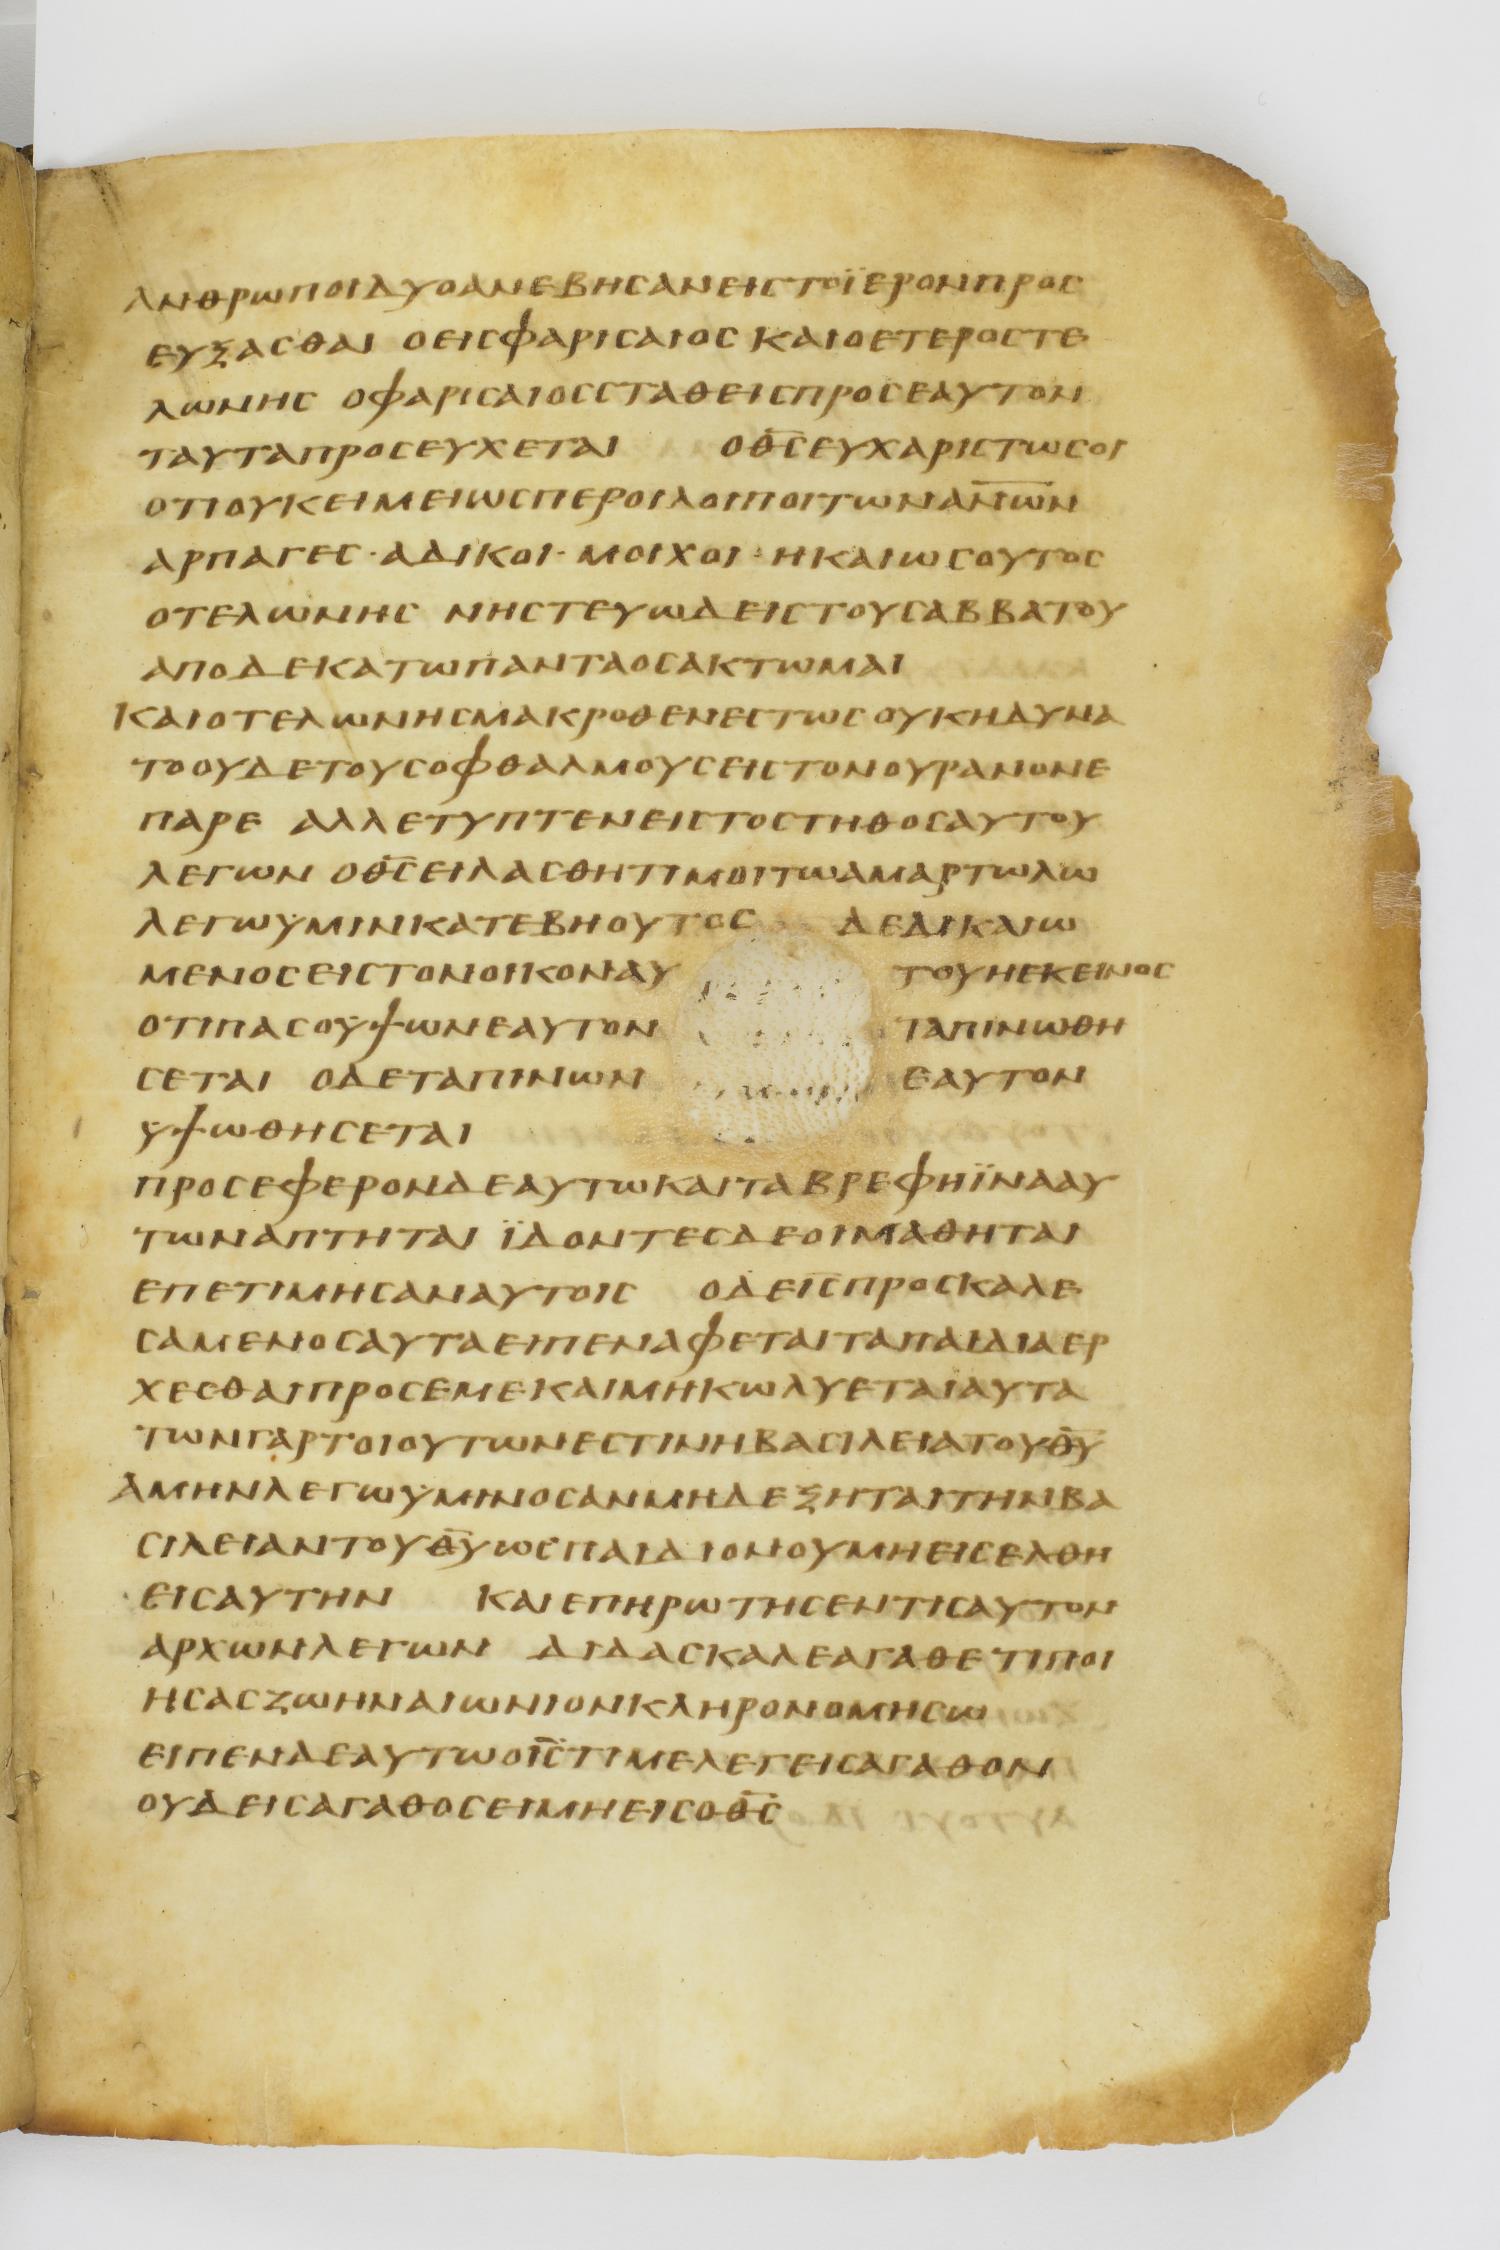 ΑΝΘΡΩΠΟΙΔΥΟΑΝΕΒΗΣΑΝΕΙΣΤΟΪΕΡΟΝΠΡΟΣ
ΕΥΞΑΣΘΑΙ ΟΕΙΣΦΑΡΙΣΑΙΟΣΚΑΙΟΕΤΕΡΟΣΤΕ
ΛΩΝΗΣ ΟΦΑΡΙΣΑΙΟΣΣΤΑΘΕΙΣΠΡΟΣΕΑΥΤΟΝ
ΤΑΥΤΑΠΡΟΣΕΥΧΕΤΑΙ ΟΘ̅Σ̅ΕΥΧΑΡΙΣΤΩΣΟΙ
ΟΤΙΟΥΚΕΙΜΕΙΩΣΠΕΡΟΙΛΟΙΠΟΙΤΩΝΑ̅Ν̅Ω̅Ν̅
ΑΡΠΑΓΕΣ·ΑΔΙΚΟΙ·ΜΟΙΧΟΙ·ΗΚΑΙΩΣΟΥΤΟΣ
ΟΤΕΛΩΝΗΣ ΝΗΣΤΕΥΩΔΕΙΣΤΟΥΣΑΒΒΑΤΟΥ
ΑΠΟΔΕΚΑΤΩΠΑΝΤΑΟΣΑΚΤΩΜΑΙ
ΚΑΙΟΤΕΛΩΝΗΣΜΑΚΡΟΘΕΝΕΣΤΩΣΟΥΚΗΔΥΝΑ
ΤΟΟΥΔΕΤΟΥΣΟΦΘΑΛΜΟΥΣΕΙΣΤΟΝΟΥΡΑΝΟΝΕ
ΠΑΡΕ ΑΛΛΕΤΥΠΤΕΝΕΙΣΤΟΣΤΗΘΟΣΑΥΤΟΥ
ΛΕΓΩΝ ΟΘ̅Σ̅ΕΙΛΑΣΘΗΤΙΜΟΙΤΩΑΜΑΡΤΩΛΩ
ΛΕΓΩΫΜΙΝΚΑΤΕΒΗΟΥΤΟΣ ΔΕΔΙΚΑΙΩ
ΜΕΝΟΣΕΙΣΤΟΝΟΙΚΟΝΑΥ ΤΟΥΗΕΚΕΙΝΟΣ
ΟΤΙΠΑΣΟΫΨΩΝΕΑΥΤΟΝ ΤΑΠΙΝΩΘΗ
ΣΕΤΑΙ ΟΔΕΤΑΠΙΝΩΝ ΕΑΥΤΟΝ
ΫΨΩΘΗΣΕΤΑΙ
ΠΡΟΣΕΦΕΡΟΝΔΕΑΥΤΩΚΑΙΤΑΒΡΕΦΗΪΝΑΑΥ
ΤΩΝΑΠΤΗΤΑΙ ΪΔΟΝΤΕΣΔΕΟΙΜΑΘΗΤΑΙ
ΕΠΕΤΙΜΗΣΑΝΑΥΤΟΙΣ ΟΔΕΙ̅Σ̅ΠΡΟΣΚΑΛΕ
ΣΑΜΕΝΟΣΑΥΤΑΕΙΠΕΝΑΦΕΤΑΙΤΑΠΑΙΔΙΑΕΡ
ΧΕΣΘΑΙΠΡΟΣΕΜΕΚΑΙΜΗΚΩΛΥΕΤΑΙΑΥΤΑ
ΤΩΝΓΑΡΤΟΙΟΥΤΩΝΕΣΤΙΝΗΒΑΣΙΛΕΙΑΤΟΥΘ̅Υ̅
ΑΜΗΝΛΕΓΩΫΜΙΝΟΣΑΝΜΗΔΕΞΗΤΑΙΤΗΝΒΑ
ΣΙΛΕΙΑΝΤΟΥΘ̅Υ̅ΩΣΠΑΙΔΙΟΝΟΥΜΗΕΙΣΕΛΘΗ
ΕΙΣΑΥΤΗΝ ΚΑΙΕΠΗΡΩΤΗΣΕΝΤΙΣΑΥΤΟΝ
ΑΡΧΩΝΛΕΓΩΝ ΔΙΔΑΣΚΑΛΕΑΓΑΘΕΤΙΠΟΙ
ΗΣΑΣΖΩΗΝΑΙΩΝΙΟΝΚΛΗΡΟΝΟΜΗΣΩ
ΕΙΠΕΝΔΕΑΥΤΩΟΙ̅Σ̅ΤΙΜΕΛΕΓΕΙΣΑΓΑΘΟΝ
ΟΥΔΕΙΣΑΓΑΘΟΣΕΙΜΗΕΙΣΟΘ̅Σ̅